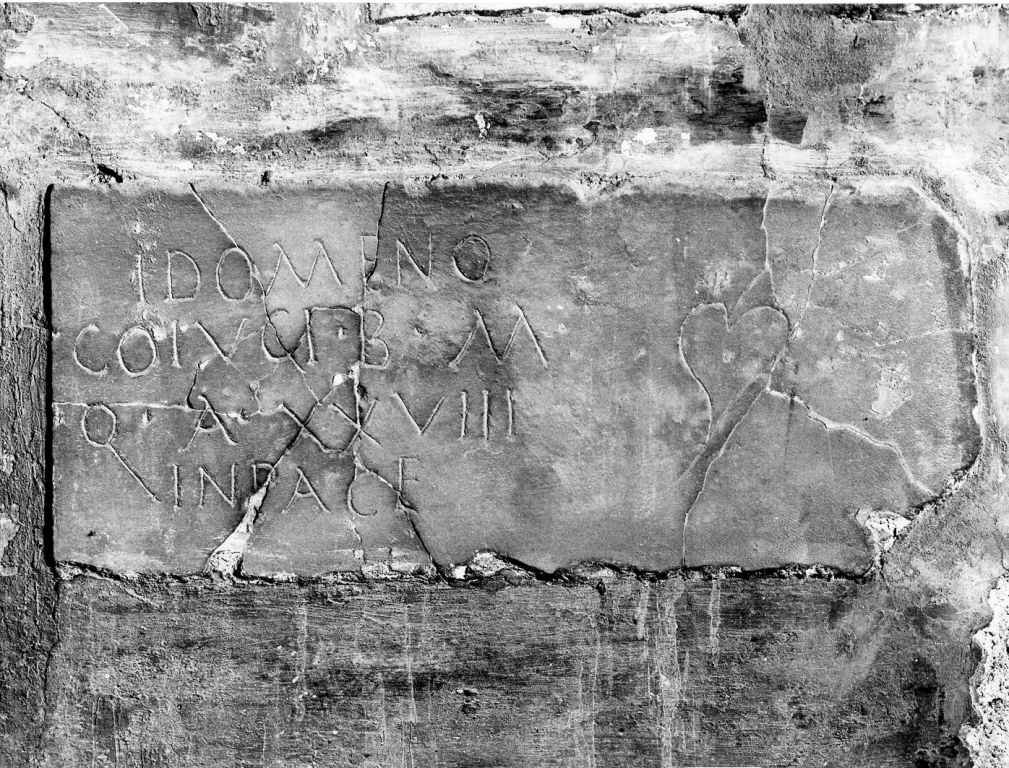 IDOMENO
COIVGI B M
Q A XXVIII
IN PACE